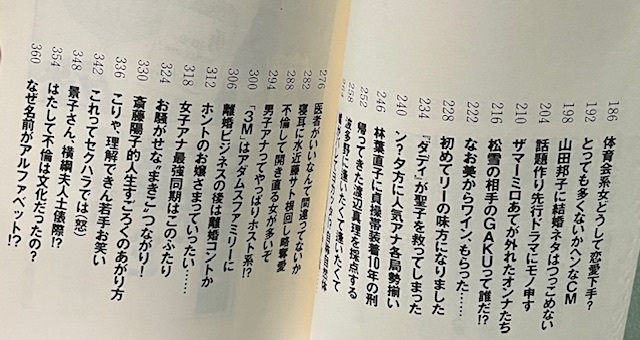 186 体育会系女どうして恋愛下手?
192 とっても多くないかヘンなCM
198 山田邦子に結婚ネタはつっこめない
204 話題作り先行ドラマにモノ申す
210 ザマーミロあてが外れたオンナたち
216 松雪の相手のGAKUって誰だ!?
222 なお美からワイン、もらった……
228 初めてリーの味方になりました
234 『ダディ』が聖子を救ってしまった
240 ン?夕方に人気アナ各局勢揃い
246 林葉直子に貞操帯装着10年の刑
252 帰ってきた渡辺真理を採点する
258 波多野に逢いたくて逢いたくて
264
276 医者がいいなんて間違ってないか
282 寝耳に水近藤サト根回し略奪愛
288 不倫して開き直る女が多いぞ
294 男子アナってやっぱりホスト系!?
300 「3M」はアダムスファミリーに
306 離婚ビジネスの後は離婚コントか
312 ホントのお嬢さまっていったい……
318 女子アナ最強同期はこのふたり
324 お騒がせな“まきこ”つながり!
330 斎藤陽子的人生すごろくのあがり方
336 こりゃ、理解できん若手お笑い
342 これってセクハラでは(怒)
348 景子さん、横綱夫人土俵際!?
354 はたして不倫は文化だったの?
360 なぜ名前がアルファベット!?